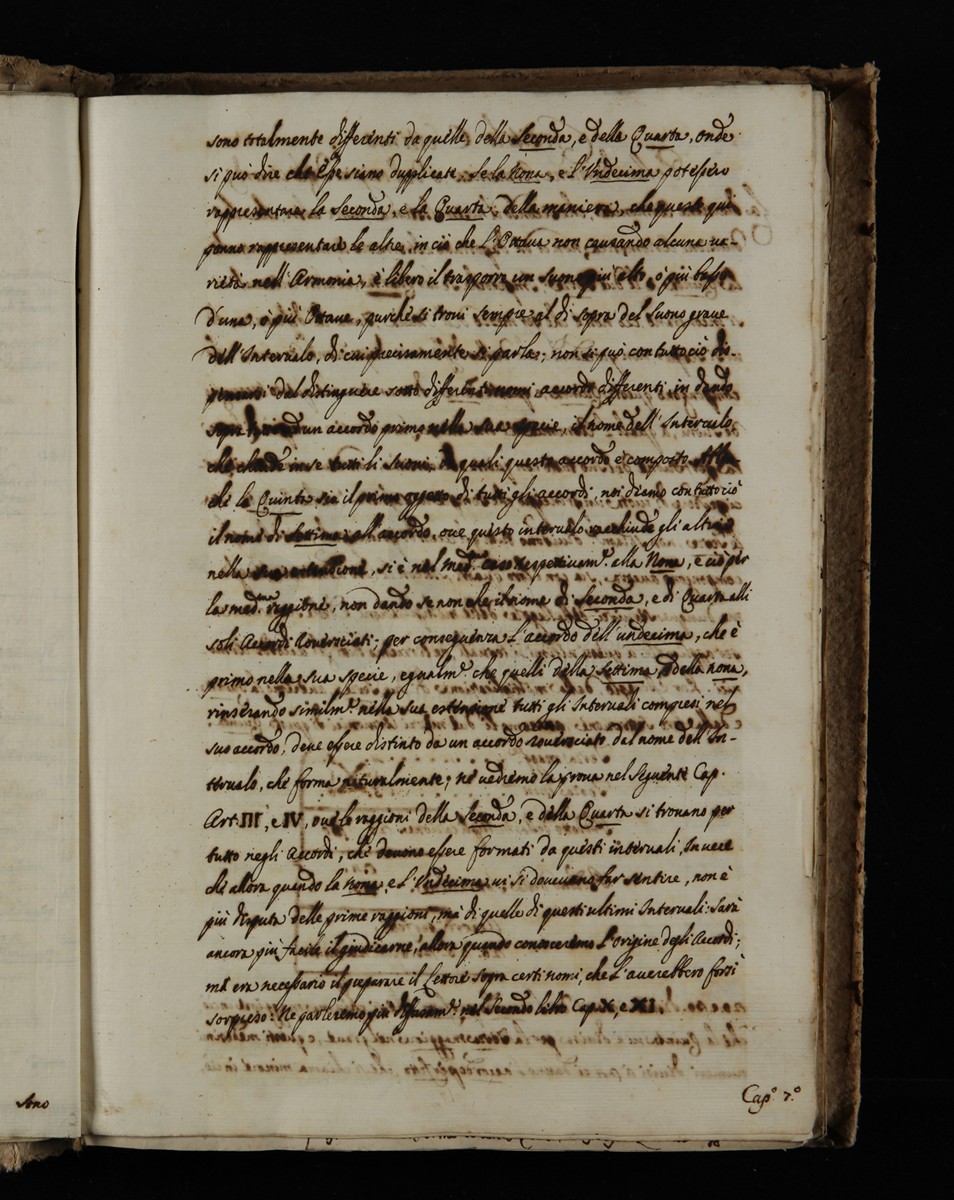 sono totalmente differenti da quelle della Seconda, e della Quarta, onde
si può dire che esse siano dupplicate: se la Nona, e l'Undecima potessero
rappresentare la Seconda, e la Quarta, della maniera, che queste qui
ponno rappresentare le altre, in ciò che l'Ottava non causando alcuna va-
rietà nell'Armonia, è libero il trasporre un Suono più alto, ò più basso
d'una, ò più Ottave, purche si trovi sempre al di sopra del Suono grave
dell'Intervalo, di cui precisamente si parla; non si può con tutto ciò dis-
pensarsi dal distinguere sotto differenti nomi, accordi differenti, in dando
sopra un accordo primo nella sua specie, il nome dell'Intervalo,
che chiude in se tutti li Suoni, di quali questo accordo è composto.
che la Quinta sia il primo oggetto di tutti gli accordi, noi diamo con tutto ciò
il nome di Settima all'accordo, ove questo intervalo racchiude gli altri
nella sua estensione, si è nel med.º caso rispettivam.e alla Nona, e ciò per
la med.ma raggione, non dando se non che il nome di Seconda, e di Quarta alli
soli Accordi roversciati; per conseguenza l'accordo dell'undecima, che è
primo nella sua specie, egualm.e che quelli della Settima, e della nona,
rinserando similm.e nella sua estensione tutti gli Intervali compresi nel
suo accordo, deve essere distinto da un accordo roversciato dal nome dell'In-
tervalo, che forma naturalmente; ne vedremo la prova nel Seguente Cap.
Art. III, e IV, ove le raggioni della Seconda, e della Quarta si trovano per
tutto negli Accordi, che devono essere formati da questi intervali, In vece
che allora quando la Nona, e l'Undecima vi si dovevano far sentire, non è
più disputa delle prime raggioni, mà di quelle di questi ultimi Intervali: Sarà
ancora più facile il giudicarne, allora quando conosceremo l'origine degli Accordi;
mà era necessario il preparare il Lettore sopra certi nomi, che l'averebbero forsi
sorpreso: Ne parleremo più difusam.e nel Secondo libro Cap. X, e XI.
Cap.º 7.º
Ano